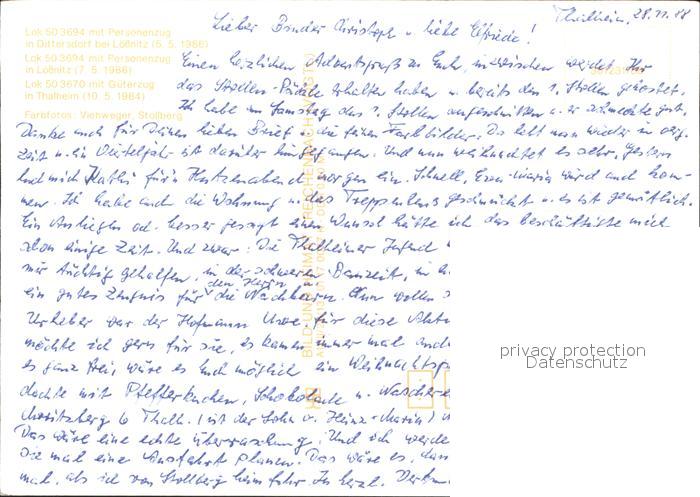 Thalheim, 28.11.88
Lieber Bruder Christoph u. liebe Elfriede!
Lok 50 3694 mit Personenzug
in Dittersdorf bei Lößnitz (5. 5. 1986)
Lok 50 3694 mit Personenzug
in Lößnitz (7. 5. 1986)
Lok 50 3670 mit Güterzug
in Thalheim (10. 5. 1984)
Farbfotos: Vieweger, Stollberg
Einen herzlichen Adventsgruß zu Euch, inzwischen werdet Ihr
das Stollen-Päckle erhalten haben u. bereits den 1. Stollen gekostet.
Ich habe am Samstag das 1. Stollen angeschnitten u. er schmeckte gut.
Danke auch für Deinen lieben Brief u. die feinen Farbbilder. Da lebt man wieder in
Zeit u. ein Vierteljahr ist darüber hingegangen. Und nun weihnachtet es sehr. Gestern
lud mich Kathi für'n Hutzenabend morgen ein. Schnell, Eva-Maria wird auch kom-
men. Ich habe auch die Wohnung u. das Treppenhaus geschmückt u. es ist gemütlich.
Ein Anliegen od. besser gesagt einen Wunsch hätte ich das beschäftigte mich
schon einige Zeit. Und zwar: Die Thalheimer Jugend
mir tüchtig geholfen, in der schweren Bauzeit, in
ein gutes Zeugnis für die Nachbarn. Nun
Urheber war der Hofmann Uwe, für diese
möchte ich gern für sie, es kamen immer mal
es ganz frei, wäre es Euch möglich ein
dachte mit Pfefferkuchen, Schokolade u.
Moritzberg 6 Thalh. (ist der Sohn v. Heinz-Maria)
Das wäre eine echte Überraschung. Und ich werde
Sie mal eine Ausfahrt planen. Das wäre es,
mal, als ich von Stollberg heim fuhr. In herzl.
privacy protection
Datenschutz